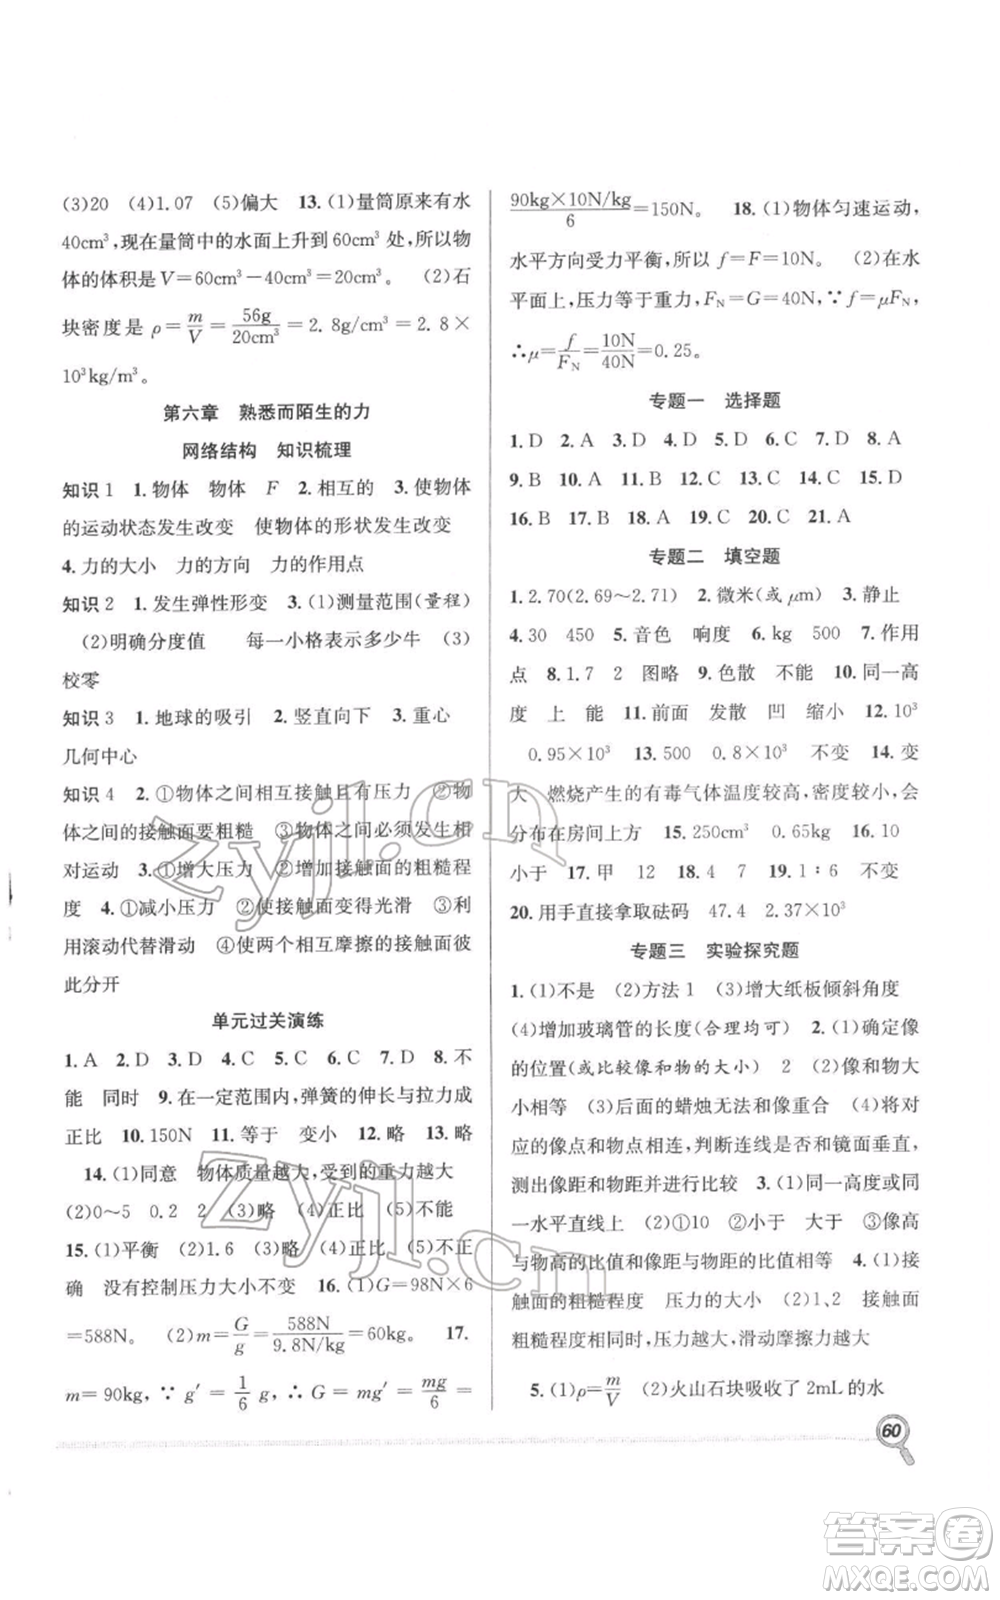 (3)20 (4)1.07 (5)偏大 13.(1)量筒原来有水
40cm³,现在量筒中的水面上升到 60cm³ 处,所以物
体的体积是 V=60cm³-40cm³=20cm³。 (2)石
块密度是 ρ=m/V=56g/20cm³=2.8g/cm³=2.8×
10³kg/m³。
第六章 熟悉而陌生的力
网络结构 知识梳理
知识 1 1.物体 物体 F 2.相互的 3.使物体
的运动状态发生改变 使物体的形状发生改变
4.力的大小 力的方向 力的作用点
知识 2 1.发生弹性形变 3.(1)测量范围(量程)
(2)明确分度值 每一小格表示多少牛 (3)
校零
知识 3 1.地球的吸引 2.竖直向下 3.重心
几何中心
知识 4 2.①物体之间相互接触且有压力 ②物
体之间的接触面要粗糙 ③物体间必须发生相
对运动 3.①增大压力 ②增大接触面的粗糙程
度 4.①减小压力 ②使接触面变得光滑 ③利
用滚动代替滑动 ④使两个相互摩擦的接触面彼
此分开
单元过关演练
1.A 2.D 3.D 4.C 5.C 6.C 7.D 8.不
能 同时 9.在一定范围内,弹簧的伸长与拉力成
正比 10.150N 11.等于 变小 12.略 13.略
14.(1)同意 物体质量越大,受到的重力越大
(2)0～5 0.2 2 (3)略 (4)正比 (5)不能
15.(1)平衡 (2)1.6 (3)略 (4)正比 (5)不正
确 没有控制压力大小不变 16.(1)G=98N×6
=588N。 (2)m=G/g=588N/9.8N/kg=60kg。 17.
m=90kg,∵g′=1/6 g,∴G=mg′=mg/6=
90kg×10N/kg/6=150N。 18.(1)物体匀速运动,
水平方向受力平衡,所以 f=F=10N。 (2)在水
平面上,压力等于重力,FN=G=40N,∵f=μFN,
∴μ=f/FN=10N/40N=0.25。
专题一 选择题
1.D 2.A 3.D 4.D 5.D 6.C 7.D 8.A
9.B 10.D 11.D 12.B 13.C 14.C 15.D
16.B 17.B 18.A 19.C 20.C 21.A
专题二 填空题
1.2.70(2.69～2.71) 2.微米(或 μm) 3.静止
4.30 450 5.音色 响度 6.kg 500 7.作用
点 8.1.7 2 图略 9.色散 不能 10.同一高
度 上 能 11.前面 发散 凹 缩小 12.10³
0.95×10³ 13.500 0.8×10³ 不变 14.变
大 燃烧产生的有毒气体温度较高,密度较小,会
分布在房间上方 15.250cm³ 0.65kg 16.10
小于 17.甲 12 18.4 7 19.1∶6 不变
20.用手直接拿取砝码 47.4 2.37×10³
专题三 实验探究题
1.(1)不是 (2)方法 1 (3)增大纸板倾斜角度
(4)增加玻璃管的长度(合理均可) 2.(1)确定像
的位置(或比较像和物的大小) 2 (2)像和物大
小相等 (3)后面的蜡烛无法和像重合 (4)将对
应的像点和物点连线,判断连线是否和镜面垂直,
测出像距和物距并进行比较 3.(1)同一高度或同
一水平直线上 (2)①10 ②小于 大于 ③像高
与物高的比值和像距与物距的比值相等 4.(1)接
触面的粗糙程度 压力的大小 (2)1、2 接触面
粗糙程度相同时,压力越大,滑动摩擦力越大
5.(1)ρ=m/V (2)火山石块吸收了 2mL 的水
60
zyjl.cn
zyjl.cn
答案卷
MXQE.COM